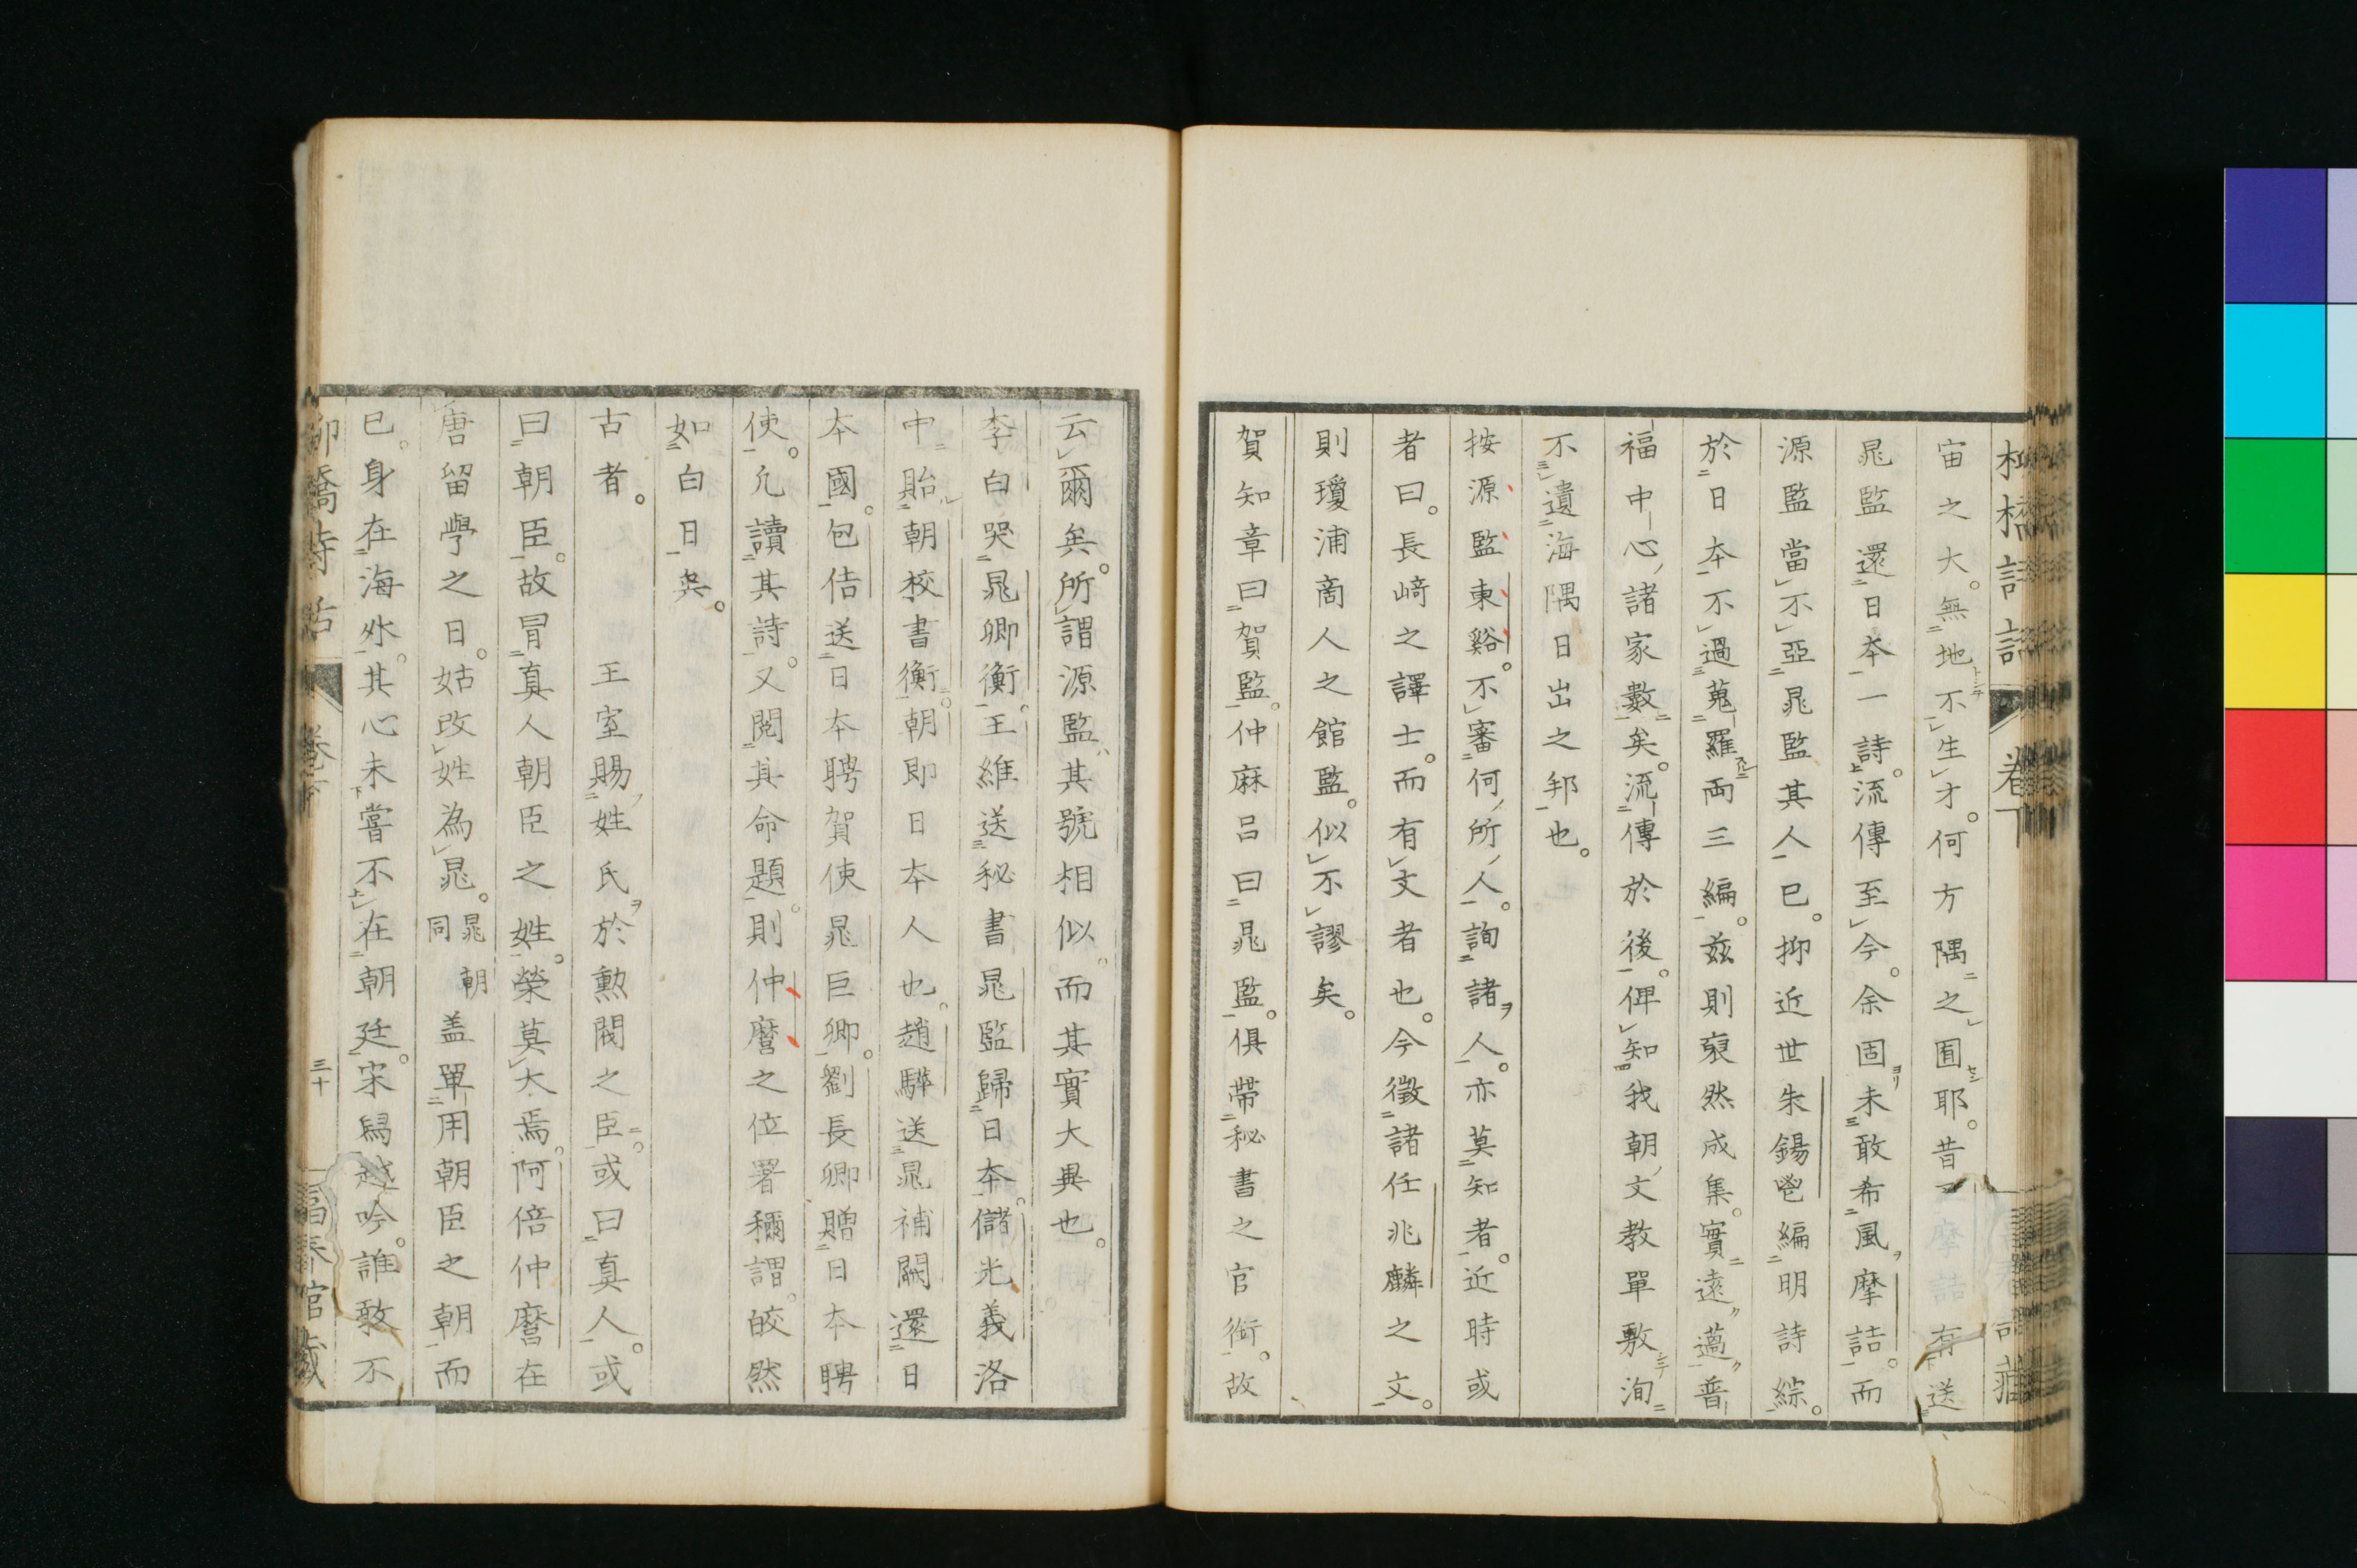 宙之大。無地不生才。何方隅之囿耶。昔王摩詰有送
晁監還日本一詩。流傳至今。余固未敢希風摩詰。而
源監當不亞晁監其人已。抑近世朱錫鬯編明詩綜。
於日本不過蒐羅両三編。茲則裒然成集。實遠邁普
福中心諸家數矣。流傳於後。俾知我朝文教單敷洵
不遺海隅日出之邦也。
按源監東谿。不審何所人。詢諸人。亦莫知者。近時或
者曰。長﨑之譯士。而有文者也。今徵諸任兆麟之文。
則瓊浦商人之館監。似不謬矣。
賀知章曰賀監。仲麻呂曰晁監。俱帶秘書之官銜。故
云爾矣。所謂源監其號相似。而其實大異也。
李白哭晁卿衡。王維送秘書晁監歸日本。儲光義洛
中貽朝校書衡。朝即日本人也。趙驊送晁補闕還日
本國。包佶送日本聘賀使晁巨卿。劉長卿贈日本聘
使。凡讀其詩。又閱其命題。則仲麿之位署稱謂。皎然
如白日矣。
古者。王室賜姓氏。於勲閥之臣。或曰真人。或
曰朝臣。故冒真人朝臣之姓。榮莫大焉。阿倍仲麿在
唐留學之日。姑改姓為晁。晁朝同盖單用朝臣之朝而
已。身在海外。其心未嘗不在朝廷。宋舄越吟。誰敢不
柳橋詩話 卷下 三十